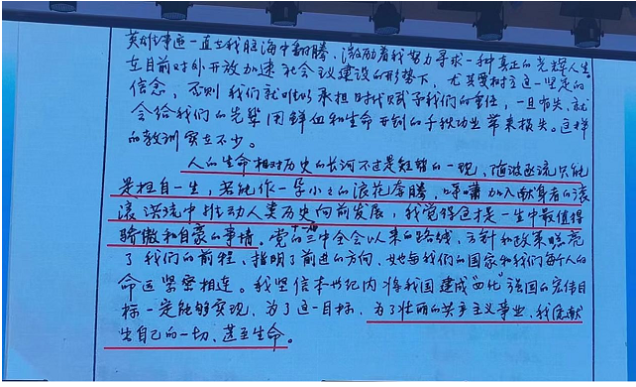 英雄事迹一直在我脑海中翻腾、激励着我努力寻求一种真正的光辉人生
在目前对外开放加速社会主义建设的形势下，尤其要树立这一坚定的
信念，否则我们就难以承担时代赋予我们的重任，一旦有失、就
会给我们的先辈用鲜血和生命开创的千秋功业带来损失。这样
的教训实在不少。
人的生命相对历史的长河不过是短暂的一现，随波逐流只能
是枉自一生，若能作一朵小小的浪花奔腾，呼啸加入献身者的滚
滚洪流中推动人类历史向前发展，我觉得这才是一生中最值得
骄傲和自豪的事情。党的十一届三中全会以来的路线、方针和政策照亮
了我们的前程，指明了前进的方向、她与我们的国家和我们每个人的
命运紧密相连。我坚信本世纪内将我国建成"四化"强国的宏伟目
标一定能够实现，为了这一目标，为了壮丽的共产主义事业，我愿献
出自己的一切、甚至生命。